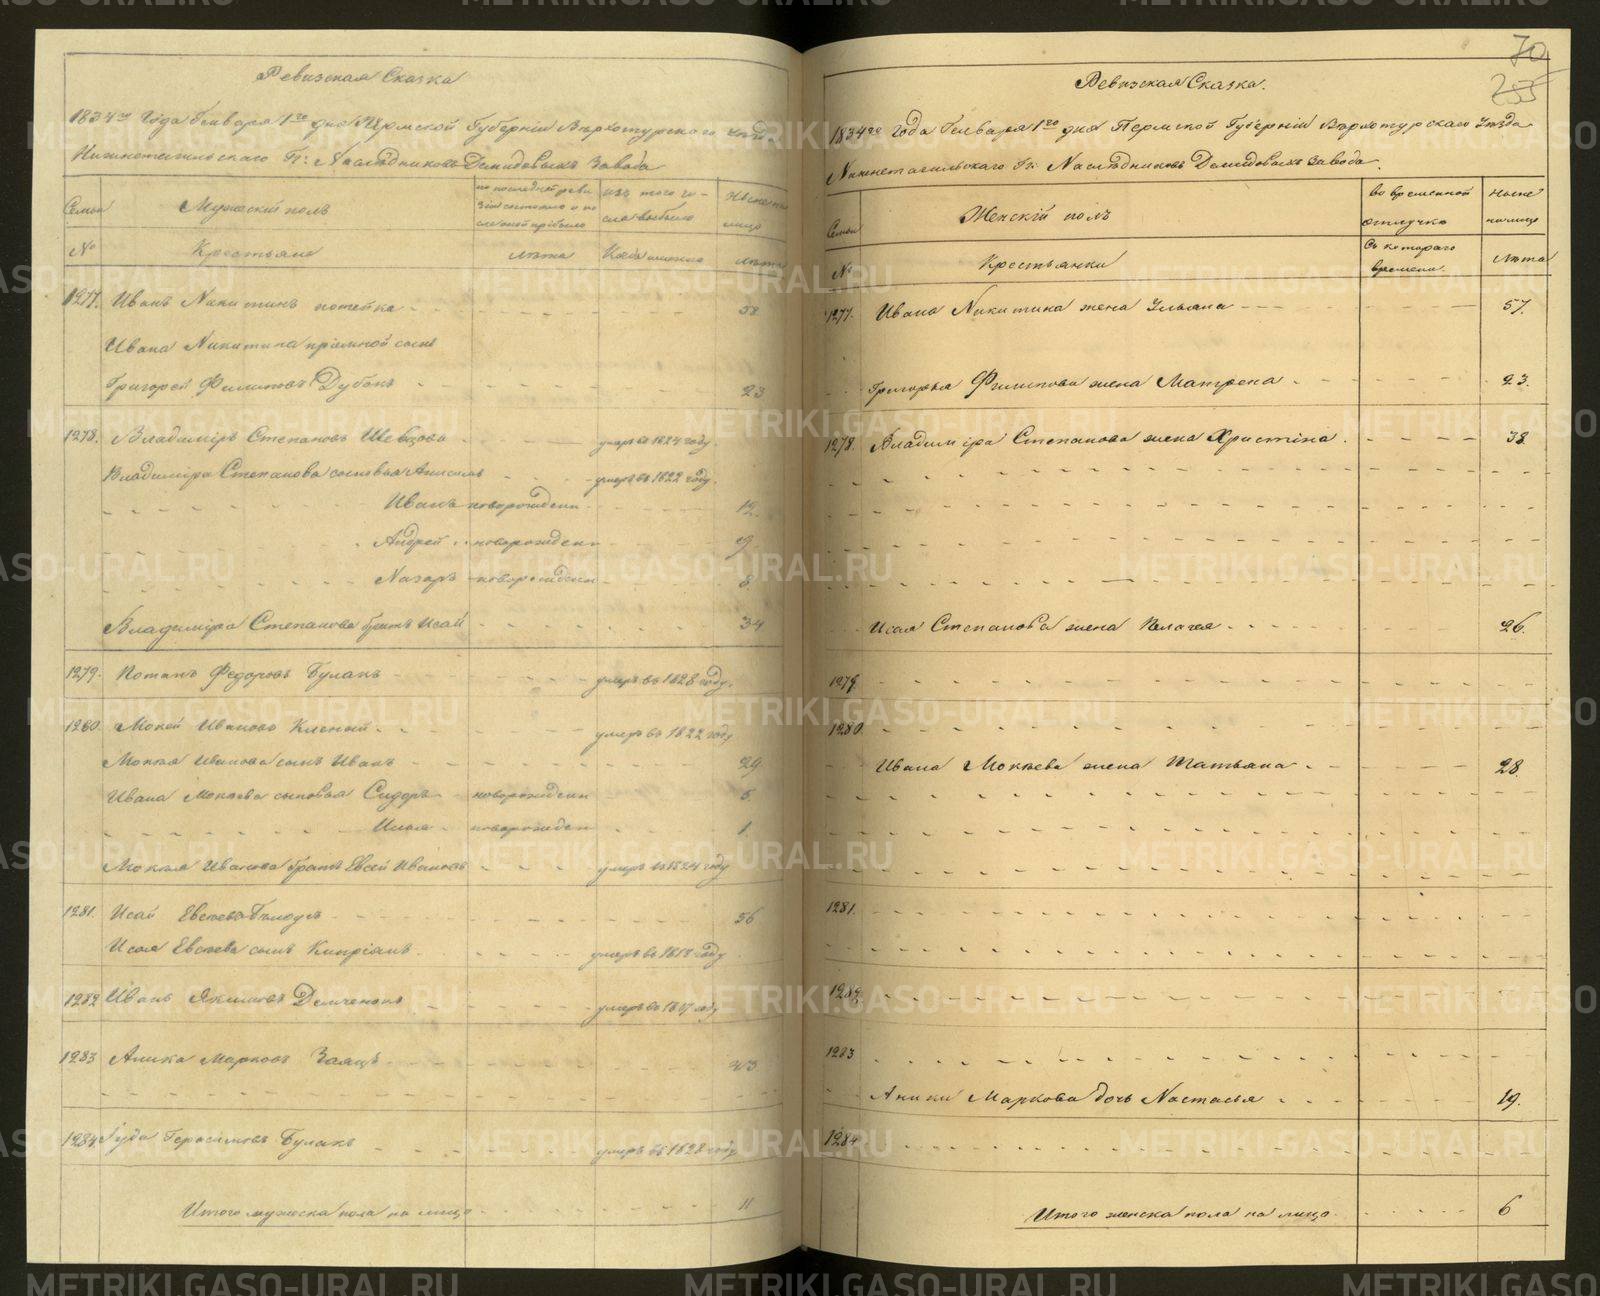 Ревизская Сказка
1834го года Генваря 1го дня Пермской Губернiи Верхотурскаго Уезда
Нижнетагильскаго Гг: Наследниковъ Демидовыхъ Завода
Семьи
Мужескiй полъ
по последней реви
зiи состояло и по
сле оной прибыло
изъ того чи-
сла выбыло
Ныне на
лицо
№
Крестьяне
лета
Когда именно
лета
1277. Иванъ Никитинъ - - - 58
Ивана Никитина прiемной сынъ
Григорей Филиповъ Дубокъ - - - 23
1278. Владимiръ Степановъ Шевцова - - - умеръ въ 1824 году.
Владимiра Степанова сыновья Анисимъ - - - умеръ въ 1822 году.
Иванъ новорожден - - - 12.
Андрей новорожден - - - 9.
Назаръ новорожден - - - 8.
Владимiра Степанова братъ Исай - - - 34
1279. Потапъ Федоровъ Булакъ - - - умеръ въ 1828 году.
1280. Мокей Ивановъ - - - умеръ въ 1822 году
Мокея Иванова сынъ Иванъ - - - 29
Ивана Мокеева сыновья Сидоръ новорожден - - - 5.
Илья новорожден - - - 1.
Мокея Иванова братъ Евсей Ивановъ - - - умеръ въ 1824 году
1281. Исай Евсеевъ - - - 56
Исая Евсеева сынъ Кипрiянъ - - - умеръ въ году
1282 Иванъ Якимовъ Демченокъ - - - умеръ въ году
1283 Аника Марковъ Заяцъ - - - 43
1284 Iуда Герасимовъ Булакъ - - - умеръ въ 1828 году
Итого мужеска пола на лицо - - - 11
70
255
Ревизская Сказка.
1834го года Генваря 1го дня Пермской Губернiи Верхотурскаго Уезда
Нижнетагильскаго Гг: Наследниковъ Демидовыхъ Завода.
Семьи
Женскiй полъ
во временной
отлучке
Ныне
на лицо
№
Крестьянки
Съ котораго
времени.
лета
1277. Ивана Никитина жена Ульяна - - - 57.
Григорья Филипова жена Матрена - - - 23.
1278. Владимiра Степанова жена Христiна - - - 38.
Исая Степанова жена Пелагея - - - 26.
1279.
1280.
Ивана Мокеева жена Татьяна - - - 28
1281.
1282.
1283
Аники Маркова дочь Настасья - - - 19.
1284
Итого женска пола на лицо - - - 6
METRIKI.GASO-URAL.RU